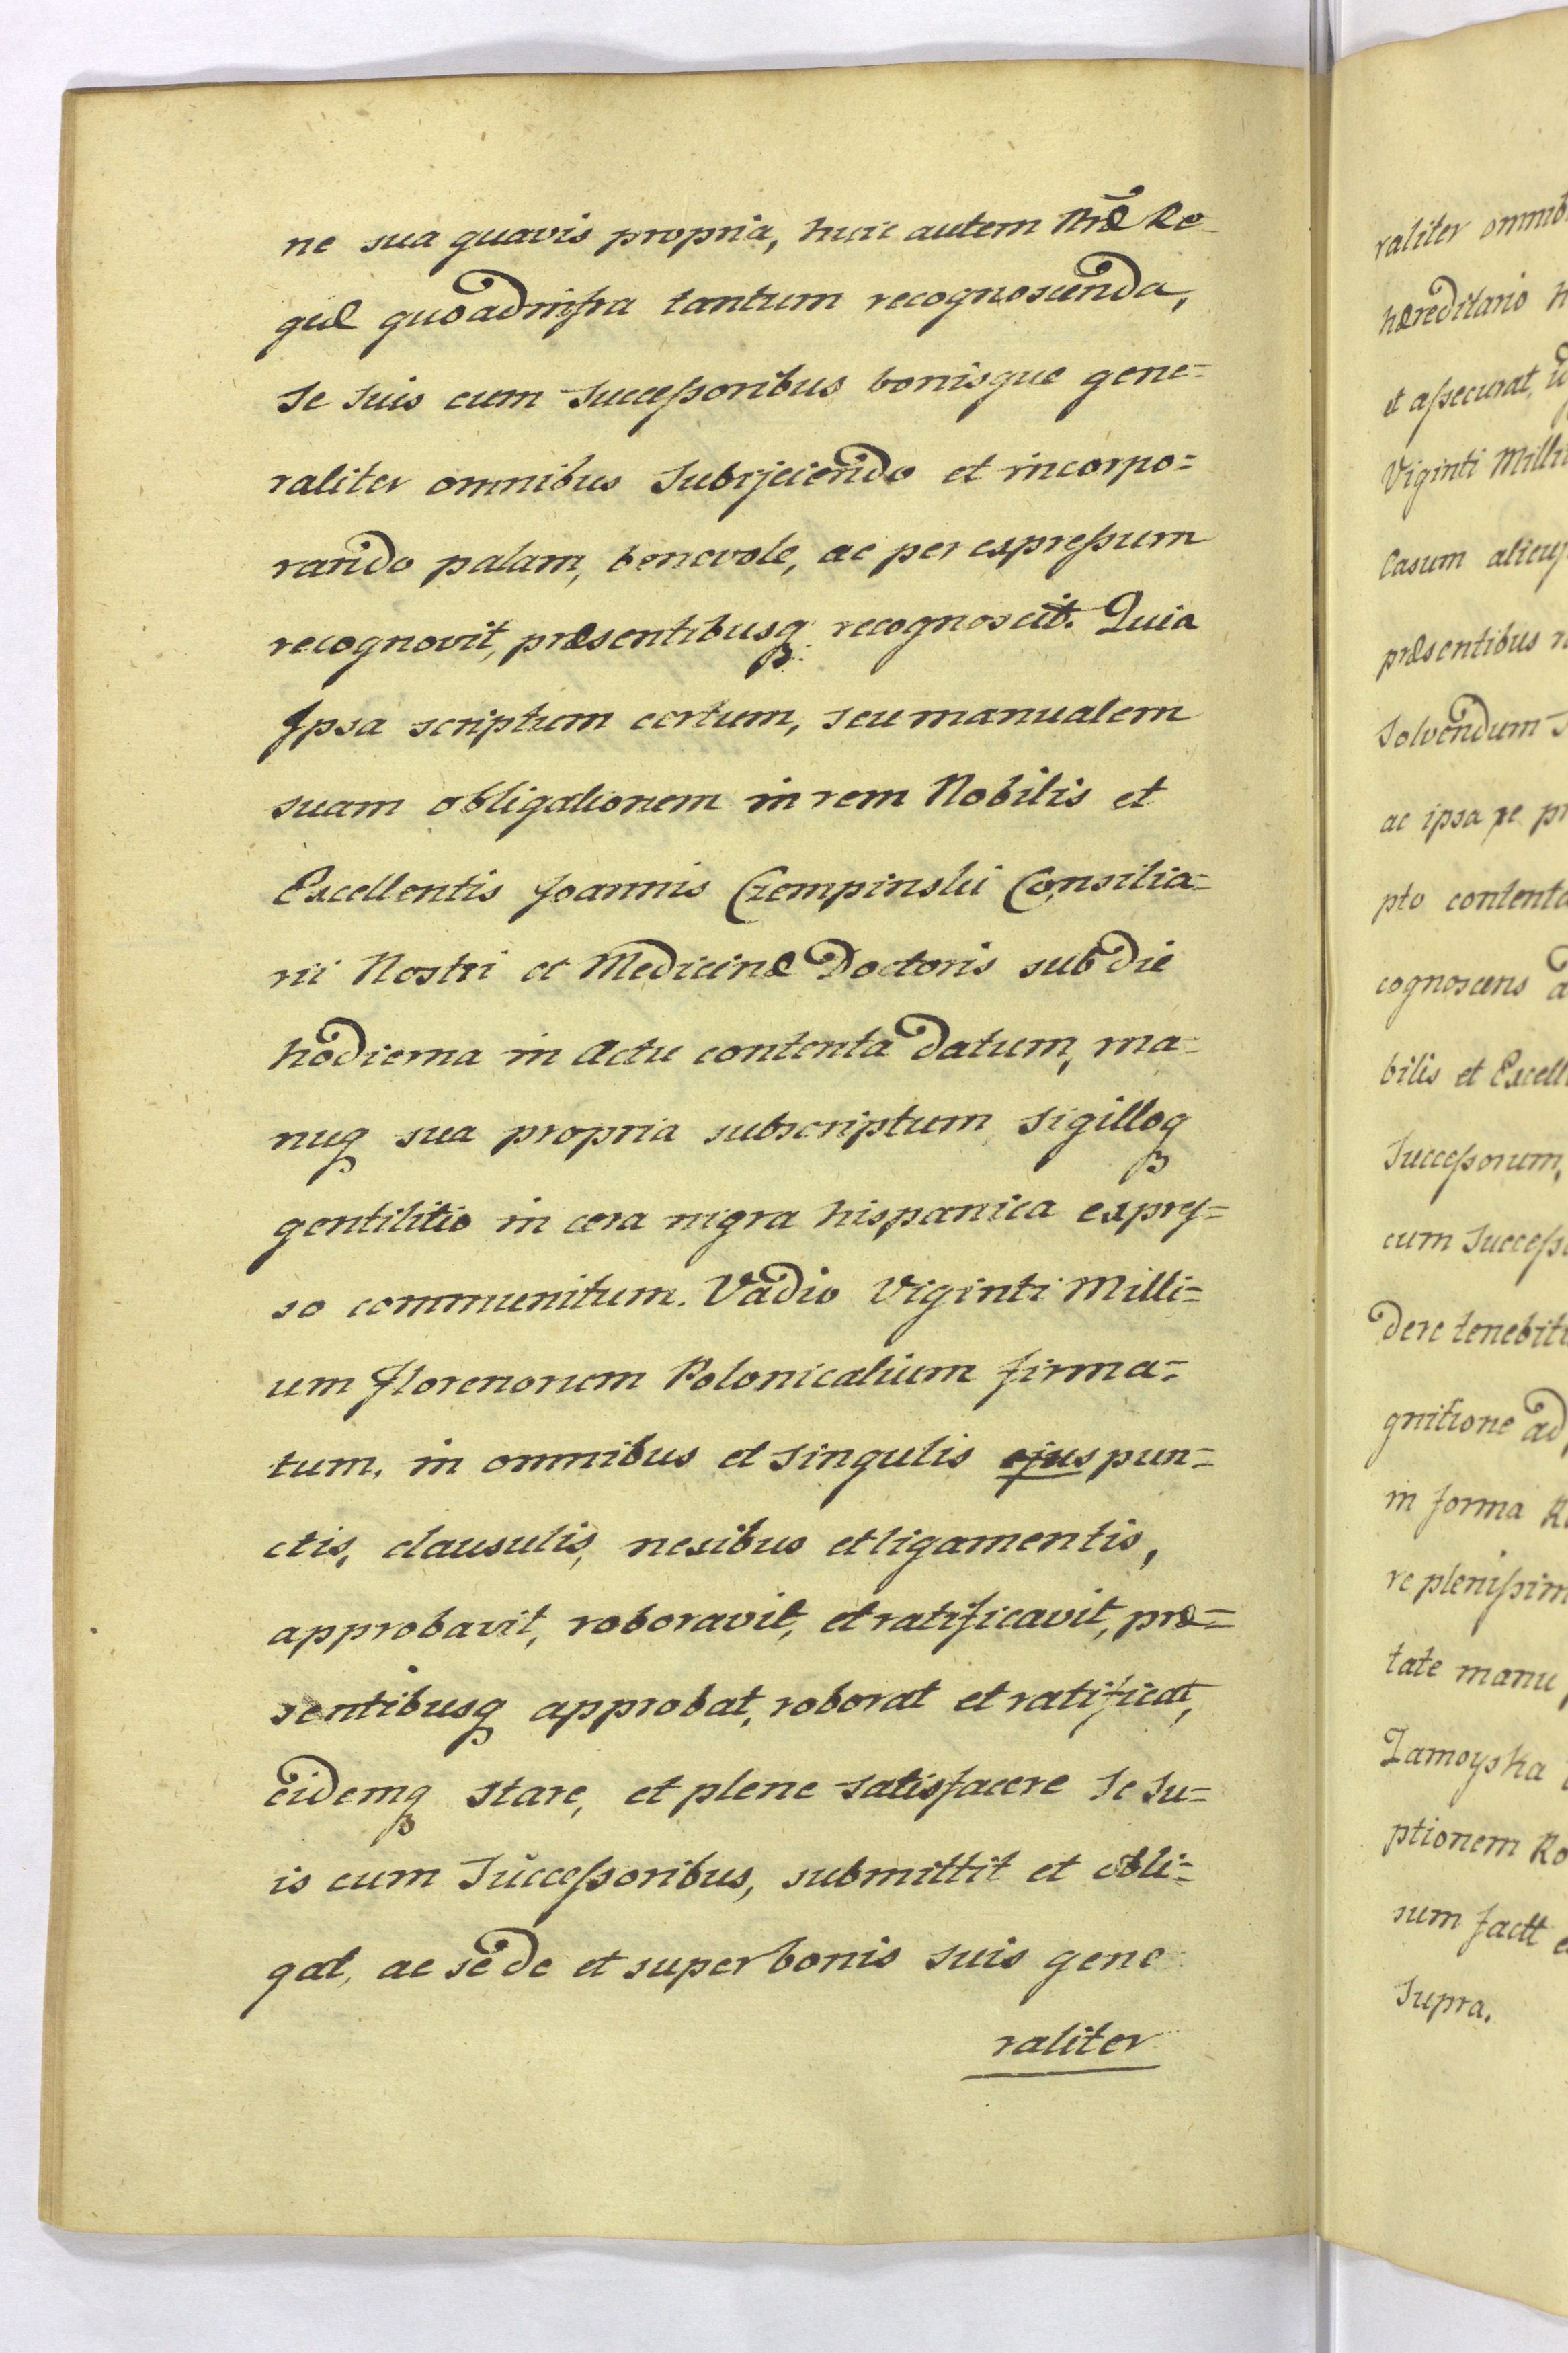 ne sua quavis propria, huic autem Nræ Re-
giæ quoad infra tantum recognoscenda,
se suis cum Successoribus bonisque gene=
raliter omnibus Subijciendo et incorpo=
rando palam, benevole, ac per expressum
recognovit, præsentibusq: recognoscit. Quia
Ipsa scriptum certum, seu manualem
suam obligationem in rem Nobilis et
Excellentis Joannis Czempinski Consilia=
rii Nostri et Medicinæ Doctoris sub die
hodierna in Actu contenta datum, ma=
nuq sua propria subscriptum, sigilloq
gentilitio in cera nigra hispanica expres=
so communitum. Vadio Viginti Milli=
um florenorum Polonicalium firma=
tum, in omnibus et singulis ejus pun=
ctis, clausulis, nexibus et ligamentis,
approbavit, roboravit, et ratificavit, præ=
sentibusq approbat, roborat et ratificat,
eidemq stare, et plene satisfacere se su=
is cum Successoribus, submittit et obli=
gat, ac se de et super bonis suis gene
raliter
raliter omnib
hæreditario
et assecurat,
Viginti Milli
Casum alicuj
præsentibus
Solvendum
ac ipsa re pr
pto contenta
cognoscens
bilis et Excell
Successorum,
cum Success
dere tenebit
gnitione ad
in forma
re plenissim
tate manu
Zamoyska
ptionem Ro
sum factt
Supra.